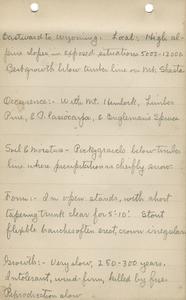 Eastward to Wyoming. Local. High al-
pine slopes in exposed situations 5000-12000
Best growth below timber line on Mt. Shasta
Occurence:- With Mt. Hemlock, Limber
Pine, & P. lasiocarpa, & Englemann Spruce
Soil & Moisture - Rocky gravels below timber
line where precipitation is chiefly snow.
Form:- In open stands, with short
tapering trunk clear for 5-10'. Stout
flexible branches often erect, crown irregular
Growth:- Very slow, 250-300 years.
Intolerant, wind-firm, killed by fire.
Reproduction slow